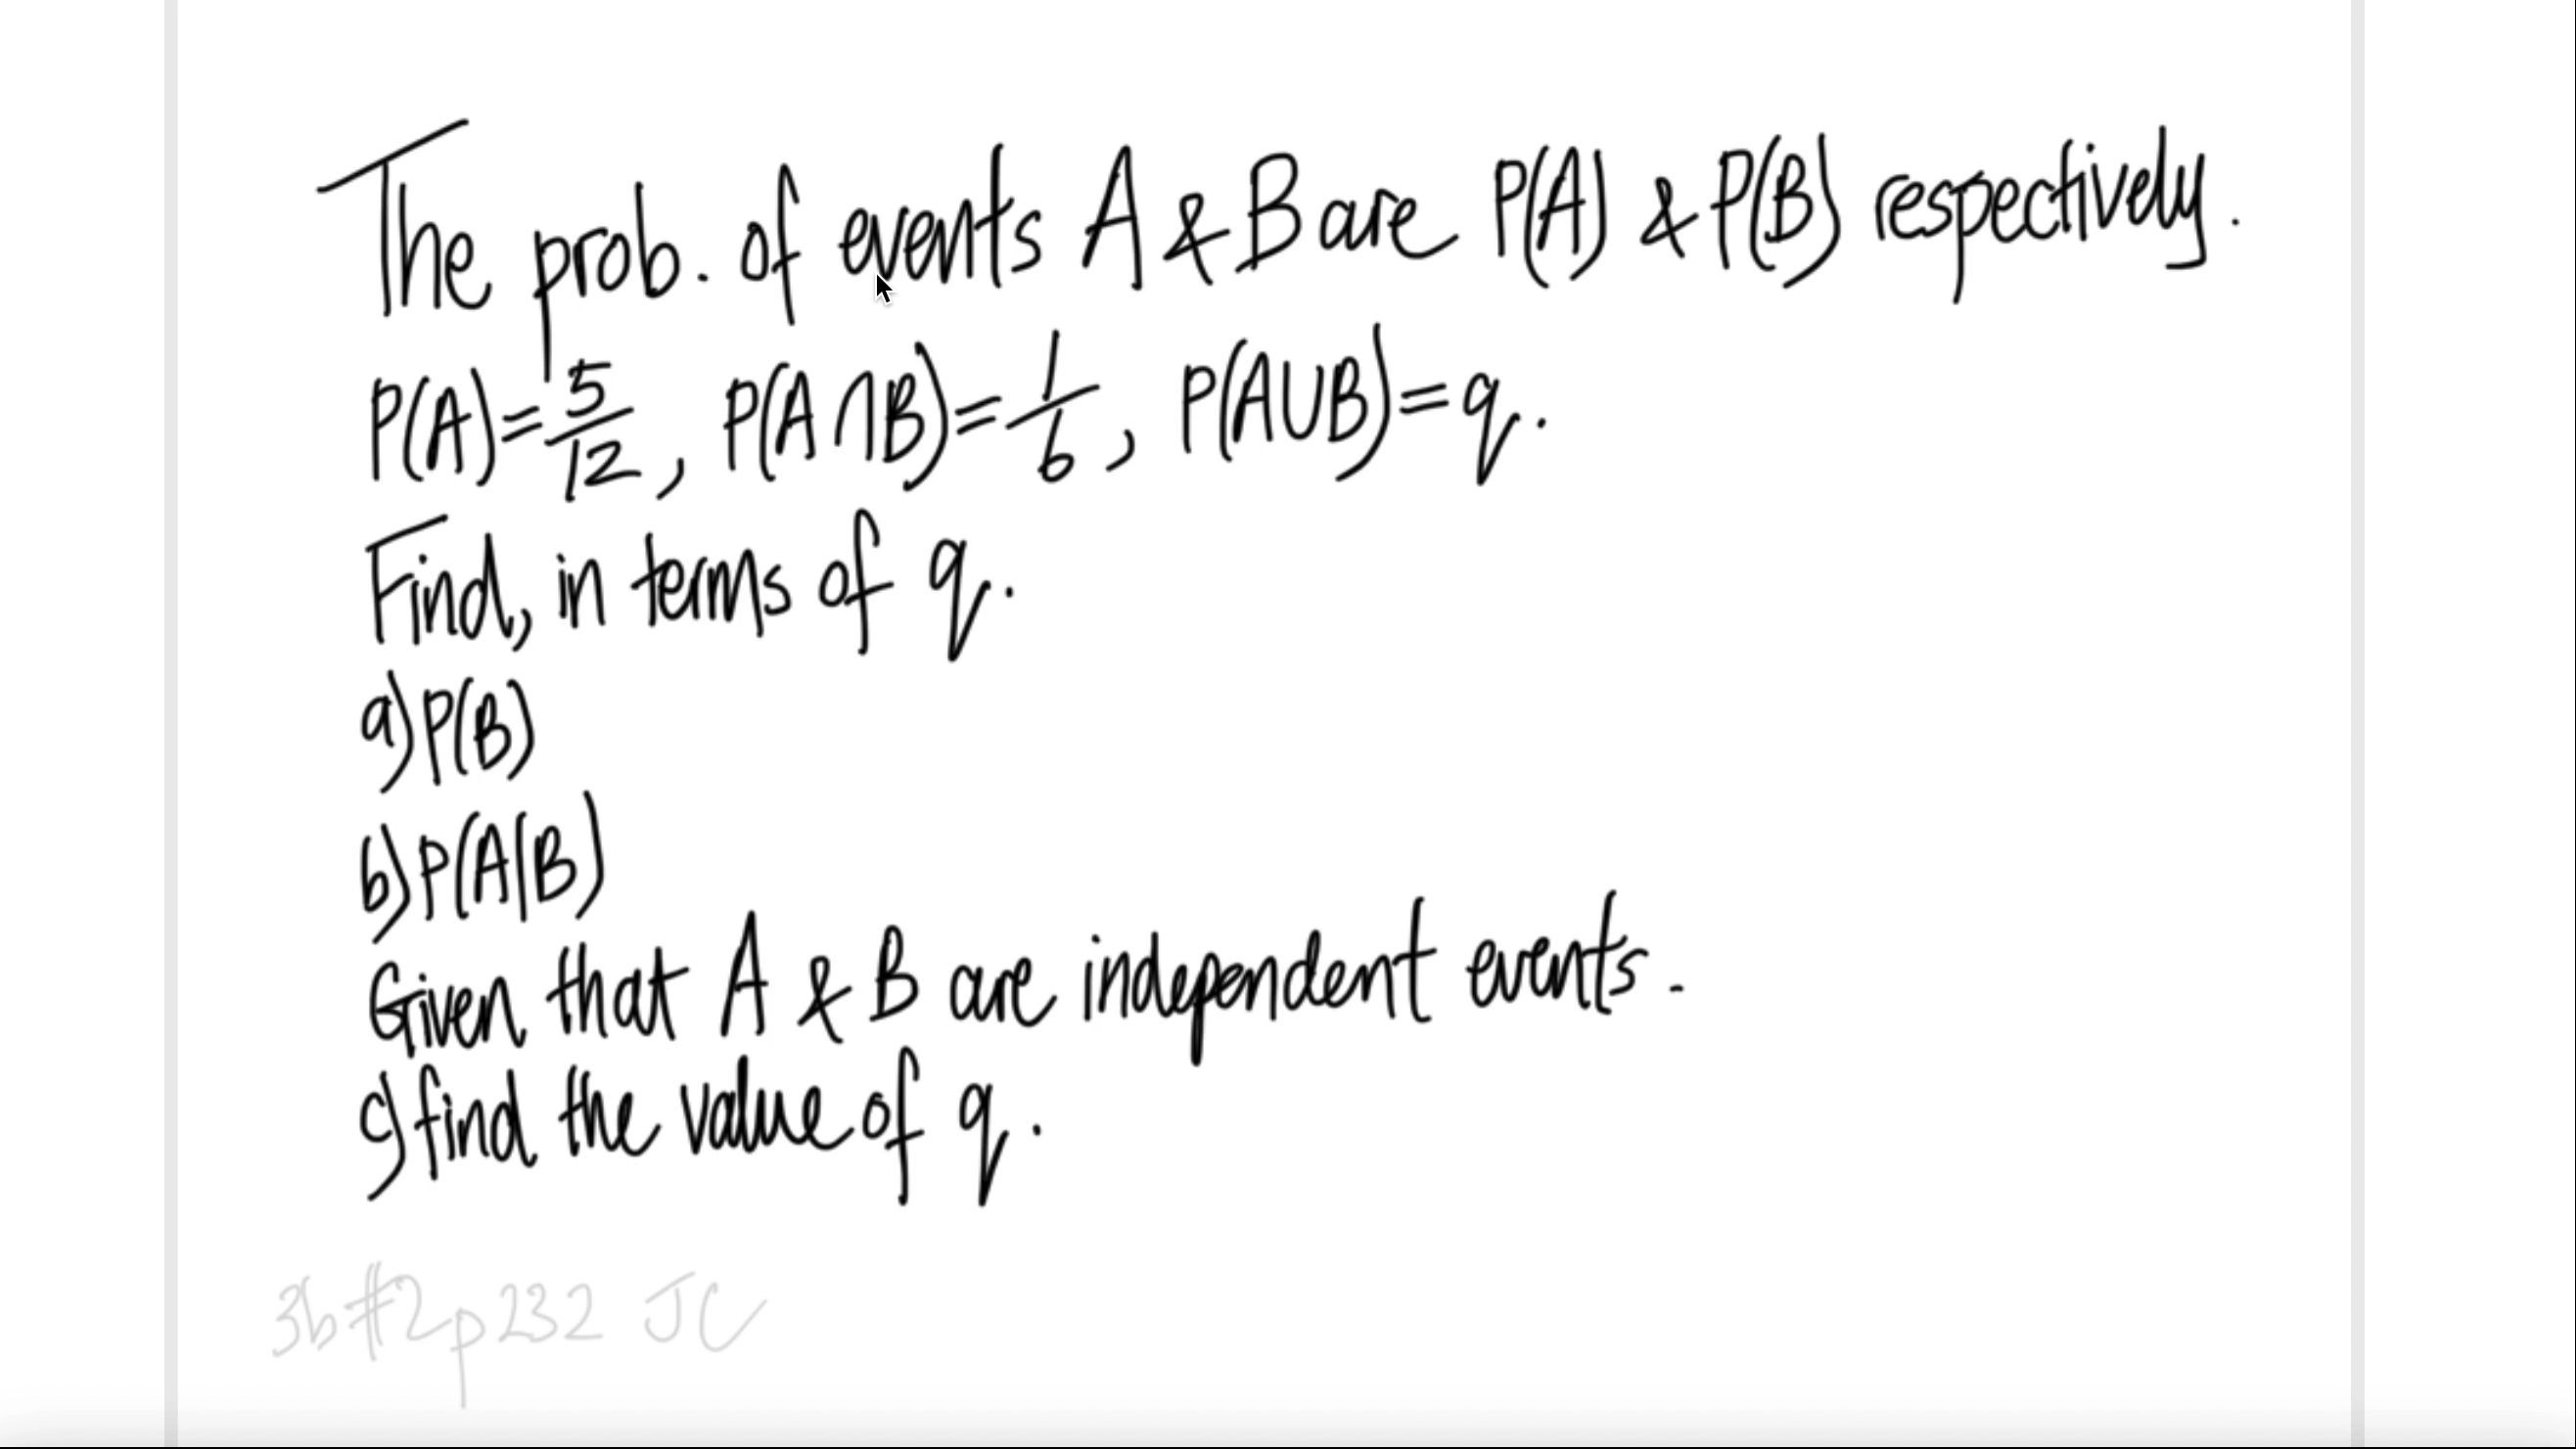 The prob. of events A & B are P(A) & P(B) respectively.
P(A)=5/12, P(A∩B)=1/6, P(A∪B)=q.
Find, in terms of q.
a)P(B)
b)P(A|B)
Given that A & B are independent events.
c)find the value of q.
3b#2p232 JC